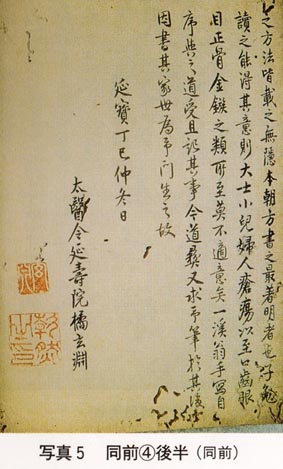 之方法皆載之無隱本朝方書之最著明者也子勉
讀之能得其意則大士小兒婦人瘡瘍以至口齒眼
目正骨金鏃之類所至莫不適意矣一溪翁手寫自
序與之道受且記其事今道彜又求筆於其後
因書其家世為门生之故
延寶丁巳仲冬日
太醫令延壽院橘玄淵
写真5　同前④後半（同前）